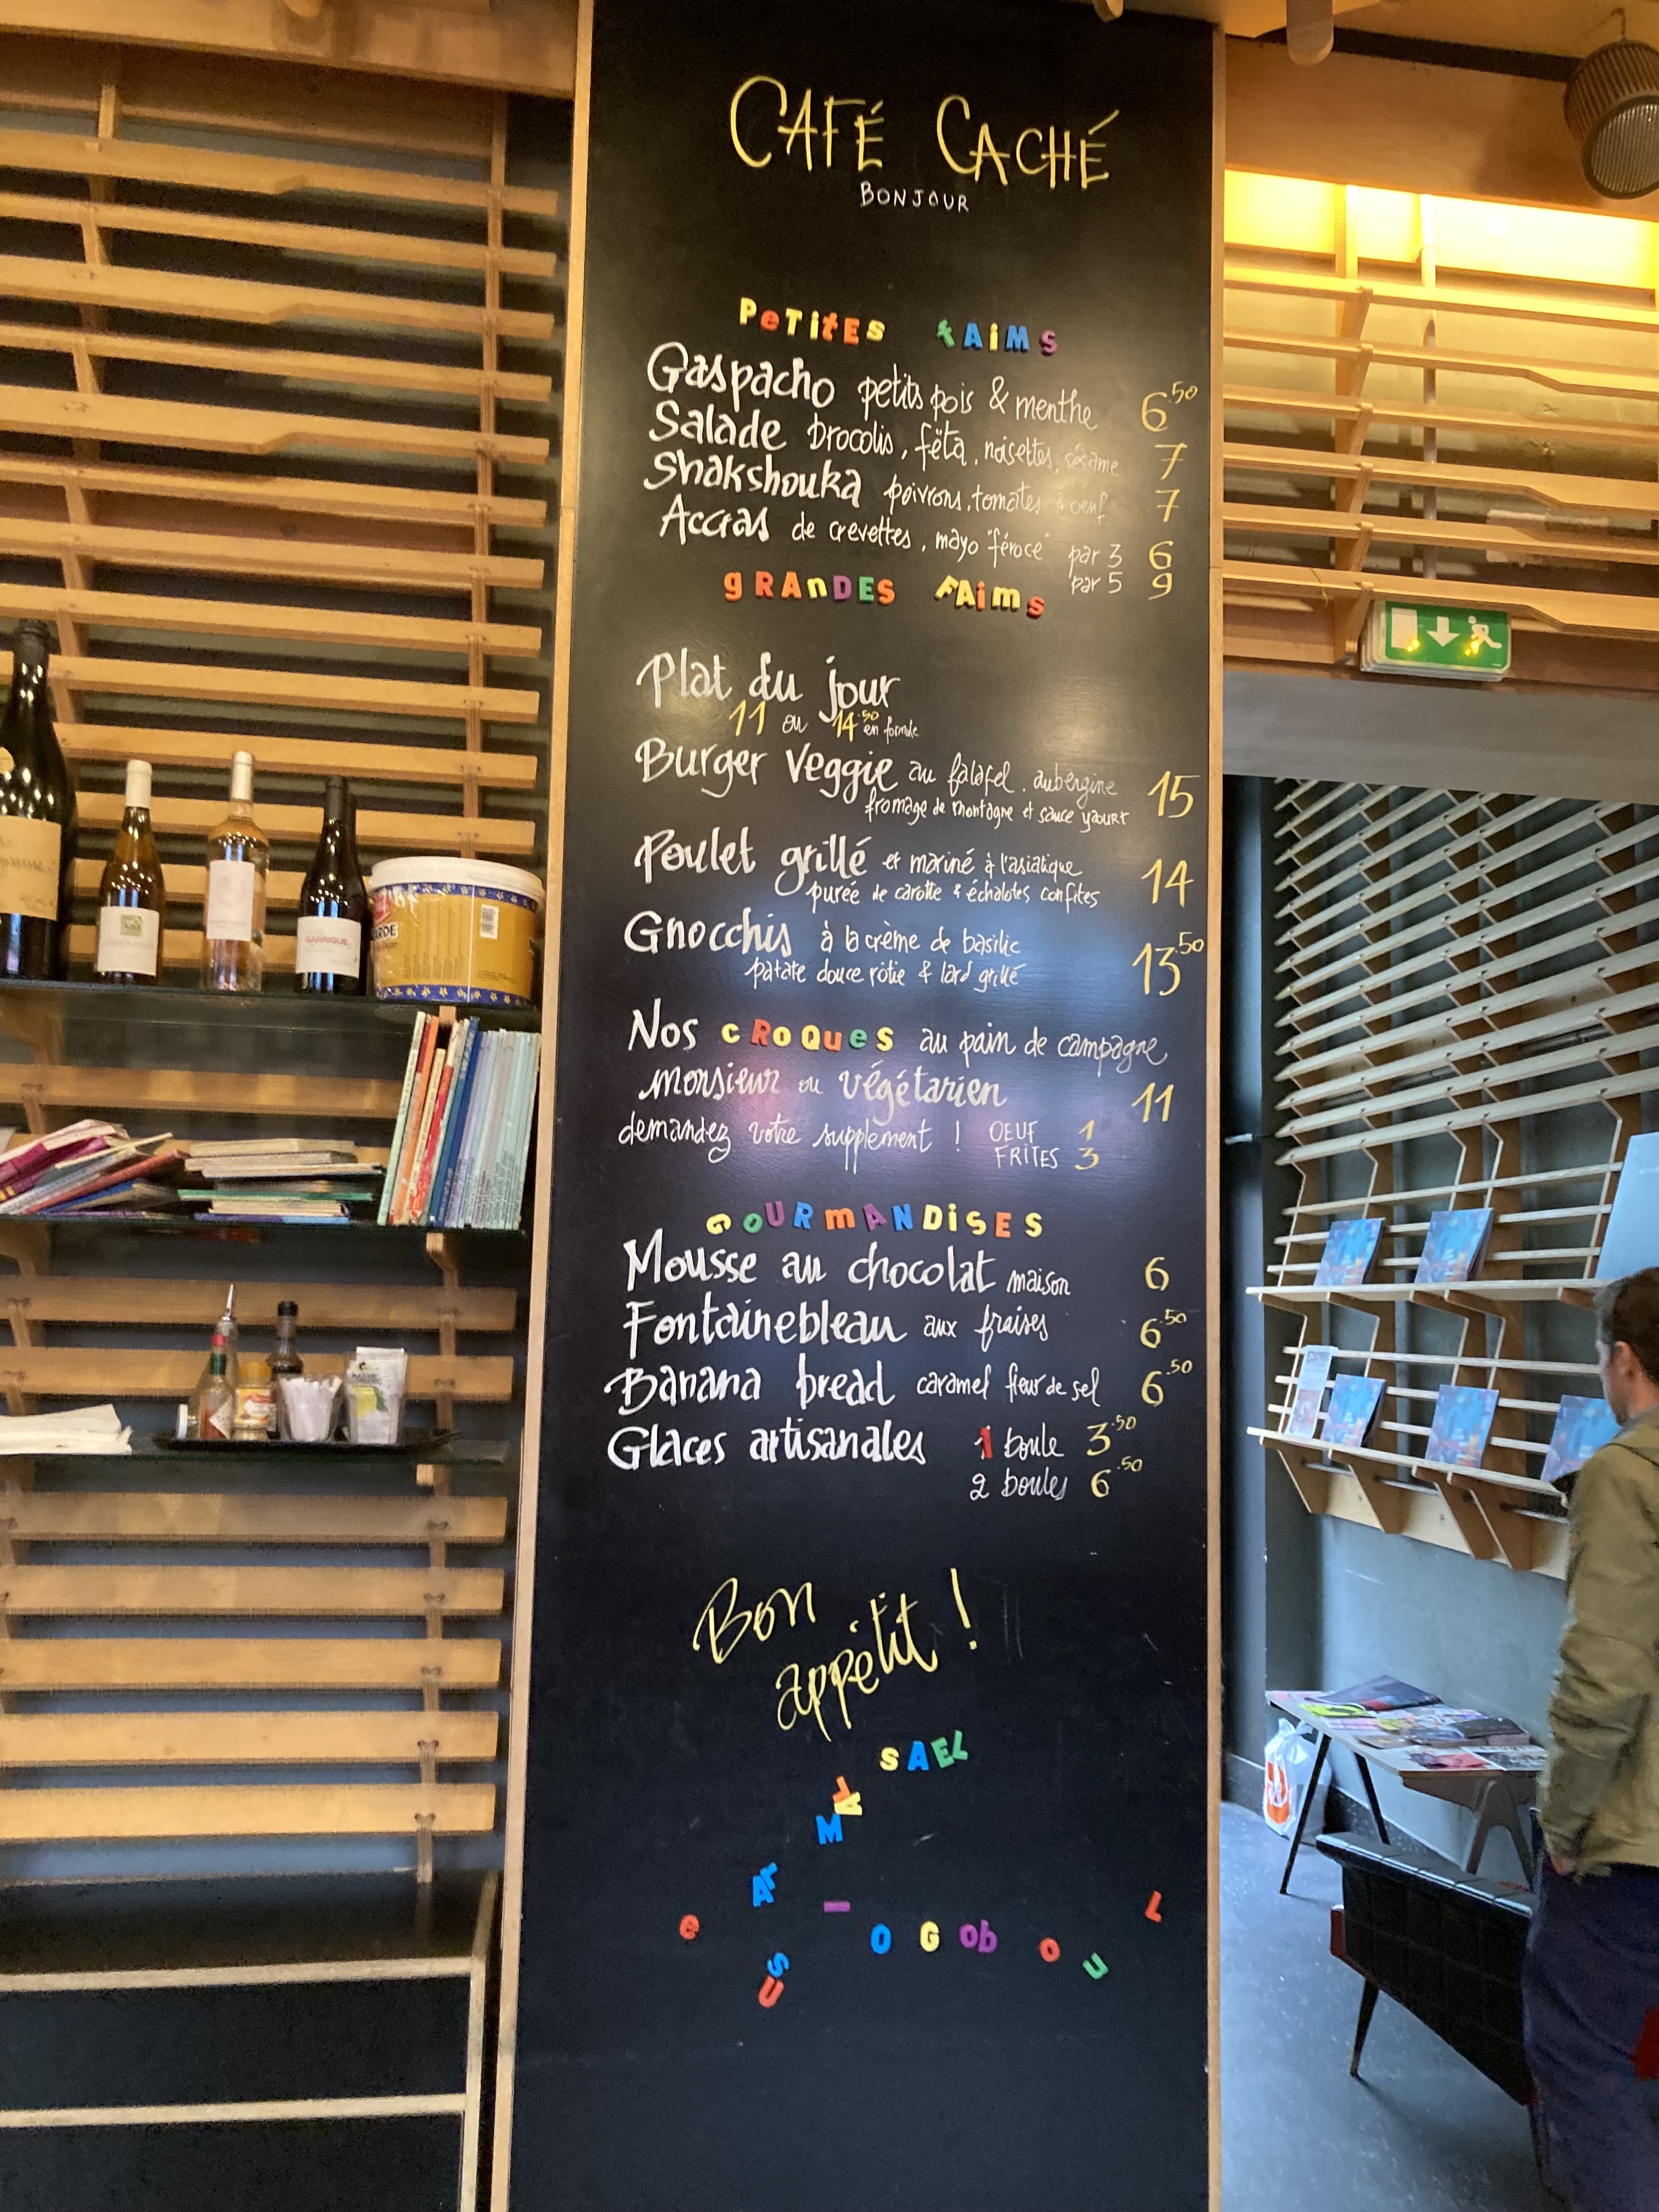 CAFÉ CACHÉ
BONJOUR
PeTitES fAiMS
Gaspacho petits pois & menthe 6.50
Salade brocolis, fëta, noisettes, sésame 7
Shakshouka poivrons, tomates & oeuf 7
Accras de crevettes, mayo "féroce" par 3 6
par 5 9
gRAnDES FAims
Plat du jour
11 ou 14.50 en formule
Burger Veggie au falafel, aubergine 15
fromage de montagne et sauce yaourt
Poulet grillé et mariné à l'asiatique 14
purée de carotte & échalotes confites
Gnocchis à la crème de basilic 13.50
patate douce rôtie & lard grillé
Nos cRoQueS au pain de campagne
monsieur ou végétarien 11
demandez votre supplement ! OEUF 1
FRITES 3
GOURmANDiSES
Mousse au chocolat maison 6
Fontainebleau aux fraises 6.50
Banana bread caramel fleur de sel 6.50
Glaces artisanales 1 boule 3.50
2 boules 6.50
Bon
appétit !
SAEL
M
Ar
e O G ob o u L
S
U
GARRIGUE